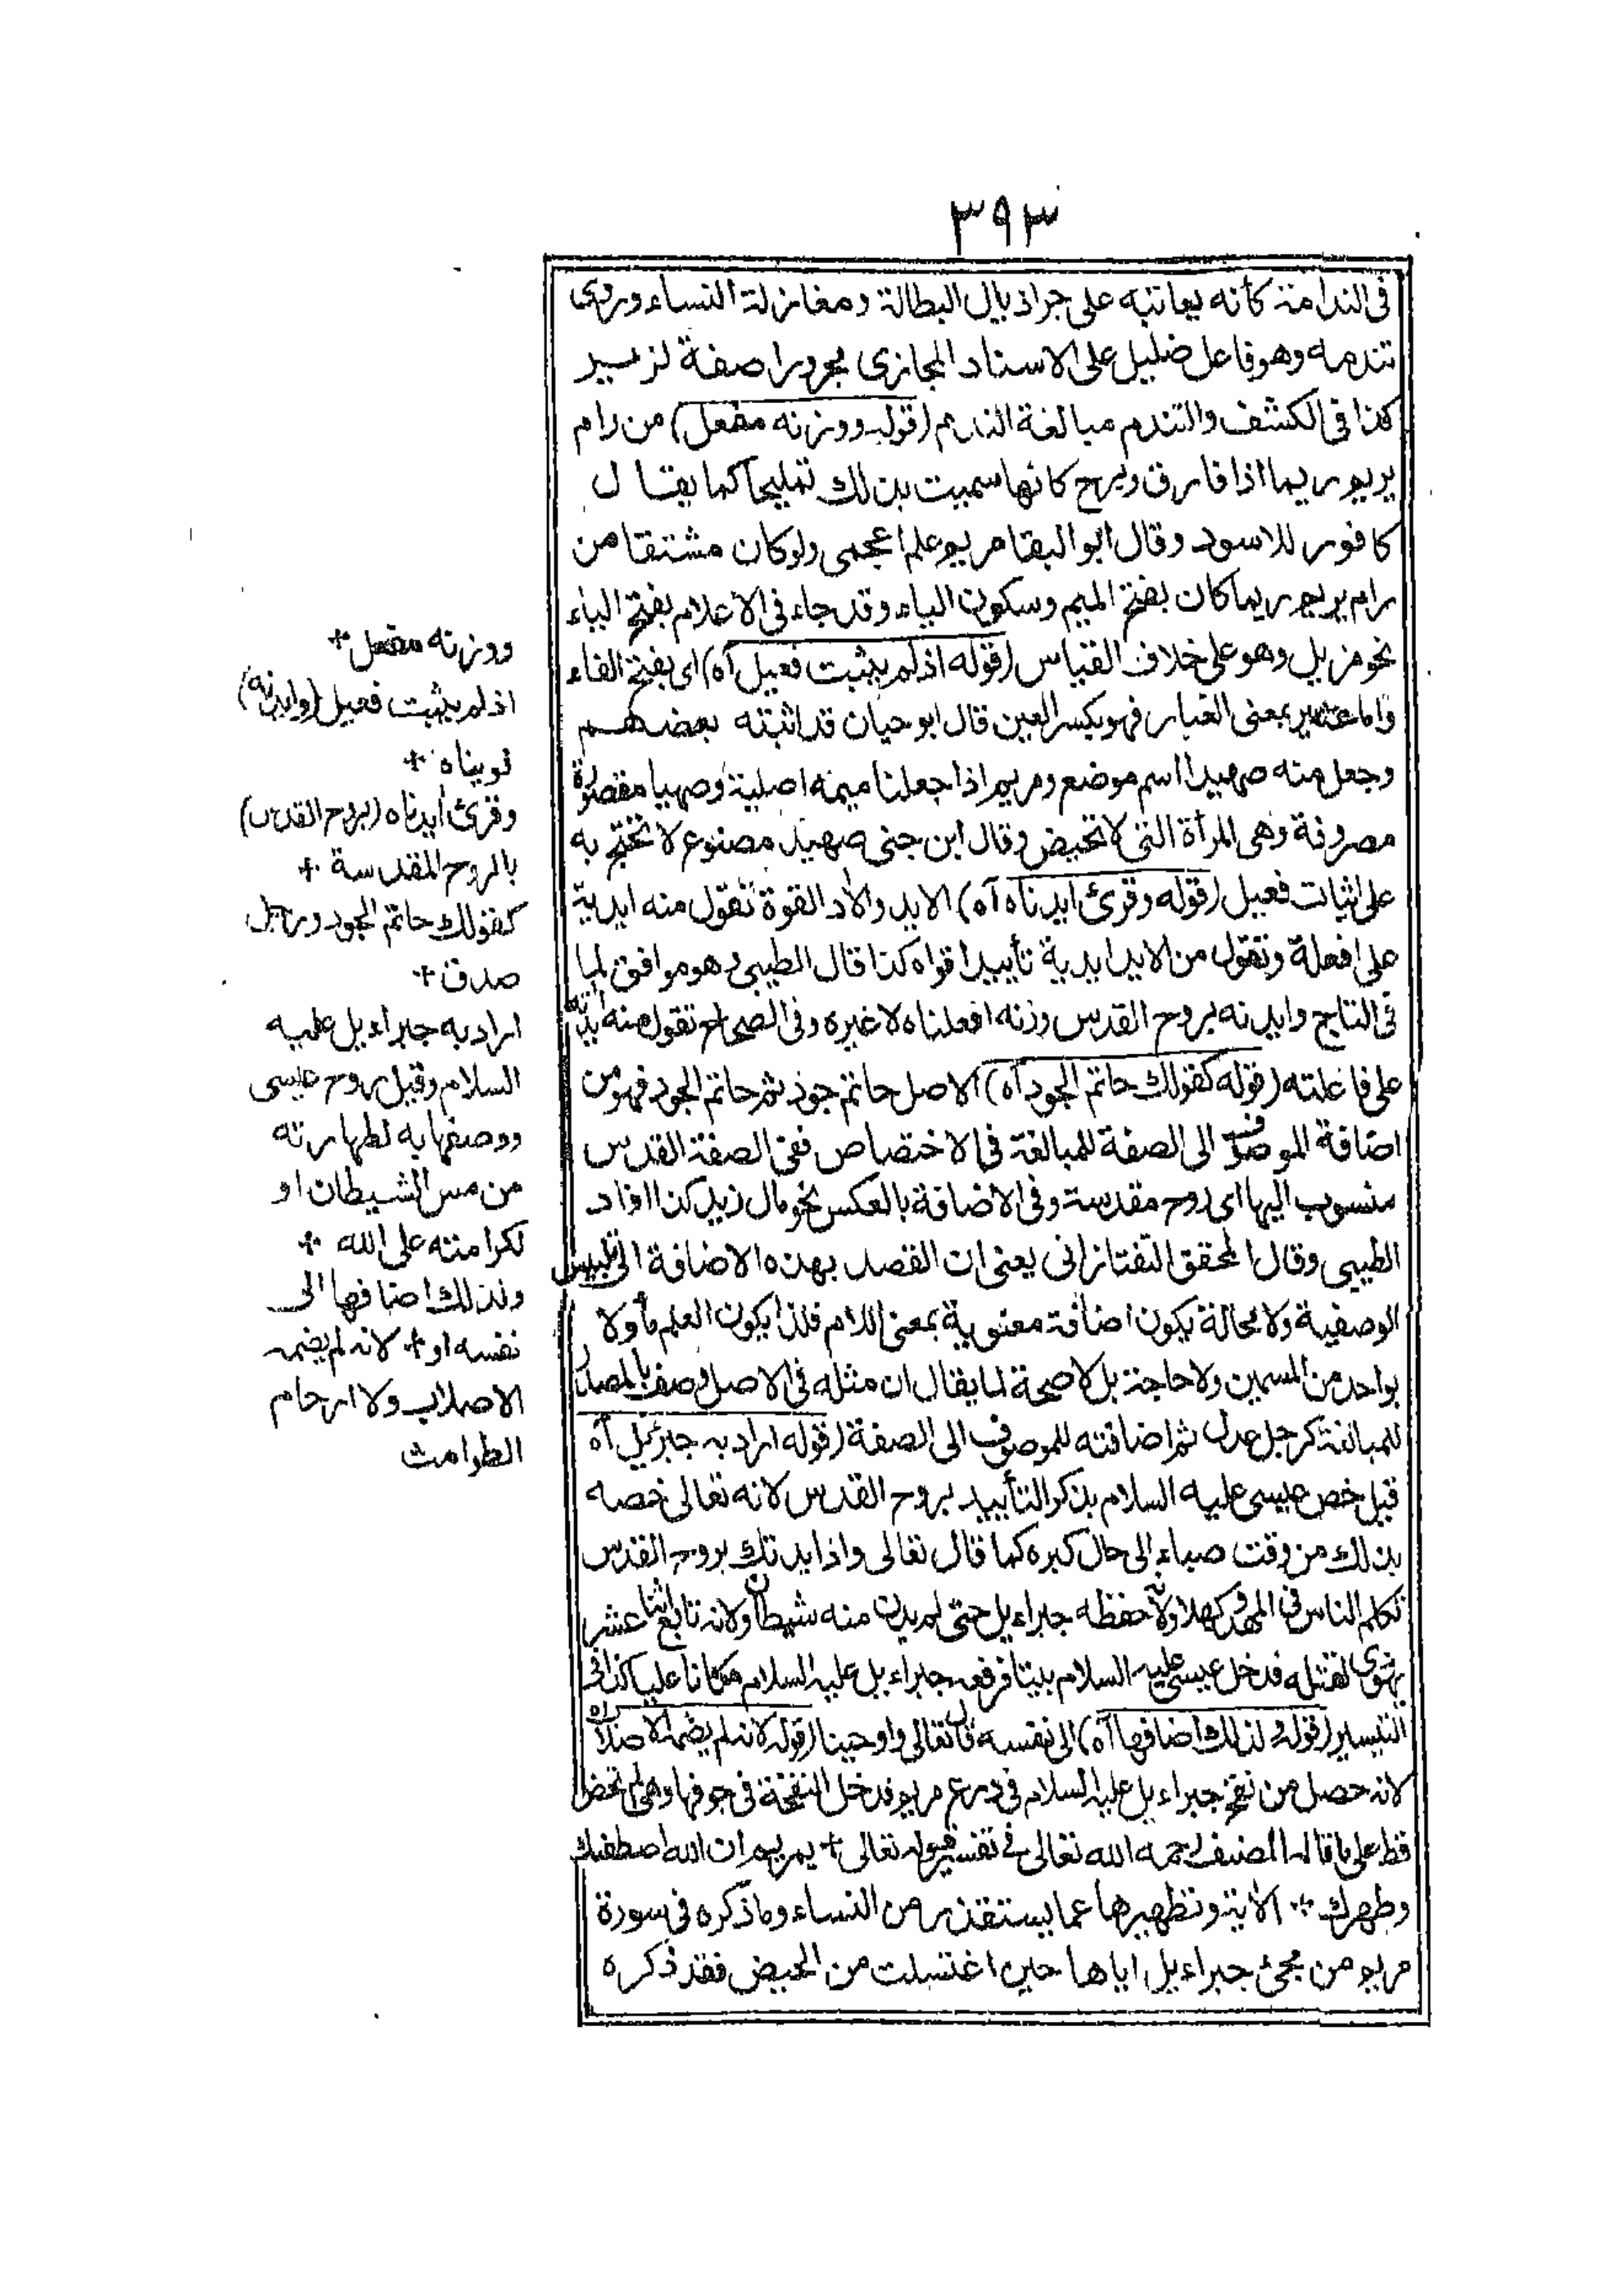 ٣٩٣
فى الندامة كأنه يعاتبه على جر اذيال البطالة ومغازلة النساء وروى
تندمه وهو فاعل ضليل على الاسناد المجازى مجرورا صفة لزير
كذا فى الكشف والتندم مبالغة الندم (قوله ووزنه مفعل) من رام
يريم ريما اذا فارق وبرح كانها سميت بذلك تمليحا كما يقال
كافور للاسود وقال ابو البقا مريم علم اعجمى ولو كان مشتقا من
رام يريم ريما كان بفتح الميم وسكون الياء وقد جاء فى الاعلام بفتح الياء
نحو مزيل وهو على خلاف القياس (قوله اذ لم يثبت فعيل آه) اى بفتح الفاء
واما عثير بمعنى الغبار فهو بكسر العين قال ابو حيان قد اثبته بعضهم
وجعل منه صهيدا اسم موضع ومريم اذا جعلنا ميمه اصلية وصهيا مقصورة
مصروفة وهى المرأة التى لا تحيض وقال ابن جنى صهيد مصنوع لا تحتج به
على اثبات فعيل (قوله وقرئ ايدناه آه) الايد والاد القوة تقول منه ايديته
على افعلة وتقول من الايد ايدية تأييدا قواه كذا قال الطيبى وهو موافق لما
فى التاج وايدنه بروح القدس وزنه افعلناه لا غيره وفى الصحاح تقول منه
على فاعلته (قوله كقولك حاتم الجود آه) الاصل حاتم جود ثم حاتم الجود فهو من
اضافة الموصوف الى الصفة للمبالغة فى الاختصاص ففى الصفة القدس
منسوب اليها اى روح مقدسة وفى الاضافة بالعكس نحو مال زيد كذا افاد
الطيبى وقال المحقق التفتازانى يعنى ان القصد بهذه الاضافة الى تلبيس
الوصفية ولا محالة يكون اضافة معنوية بمعنى اللام فلذا يكون العلم مأولا
بواحد من المسمين ولا حاجة بل لا صحة لما يقال ان مثله فى الاصل وصف بالمصدر
للمبالغة كرجل عدل ثم اضافته للموصوف الى الصفة (قوله اراد به جبرئيل آه
قيل خص عيسى عليه السلام بذكر التأييد بروح القدس لانه تعالى خصه
بذلك من وقت صباه الى حال كبره كما قال تعالى واذ ايدتك بروح القدس
تكلم الناس فى المهد وكهلا ولانه حفظه جبراءيل حتى لم يدن منه شيطان ولانه تابع اثنا عشر
يهودى لقتله فدخل عيسى عليه السلام بيتا فرفعه جبراءيل عليه السلام مكانا عليا كذا فى
التيسير (قوله ولذلك اضافها آه) الى نفسه قال تعالى واوحينا (قوله لانه لم يضمه الاصلاب آه
لانه حصل من نفخ جبراءيل عليه السلام فى درع مريم فدخل النفخة فى جوفها وهى لم تحض
قط على ما قاله المصنف رحمه الله تعالى فى تفسير قوله تعالى + يمريم ان الله اصطفىك
وطهرك + الاية وتطهيرها عما يستقذر من النساء وما ذكره فى سورة
مريم من مجئ جبراءيل اياها حين اغتسلت من الحيض فقد ذكره
ووزنه مفعل +
اذ لم يثبت فعيل (وايدنه)
قويناه +
وقرئ أيدناه (بروح القدس)
بالروح المقدسة +
كقولك حاتم الجود ورجل
صدق +
اراد به جبراءيل عليه
السلام وقيل روح عيسى
ووصفها به لطهارته
من مس الشيطان او
لكرامته على الله +
ولذلك اضافها الى
نفسه او + لانه لم يضمه
الاصلاب ولا ارحام
الطوامث